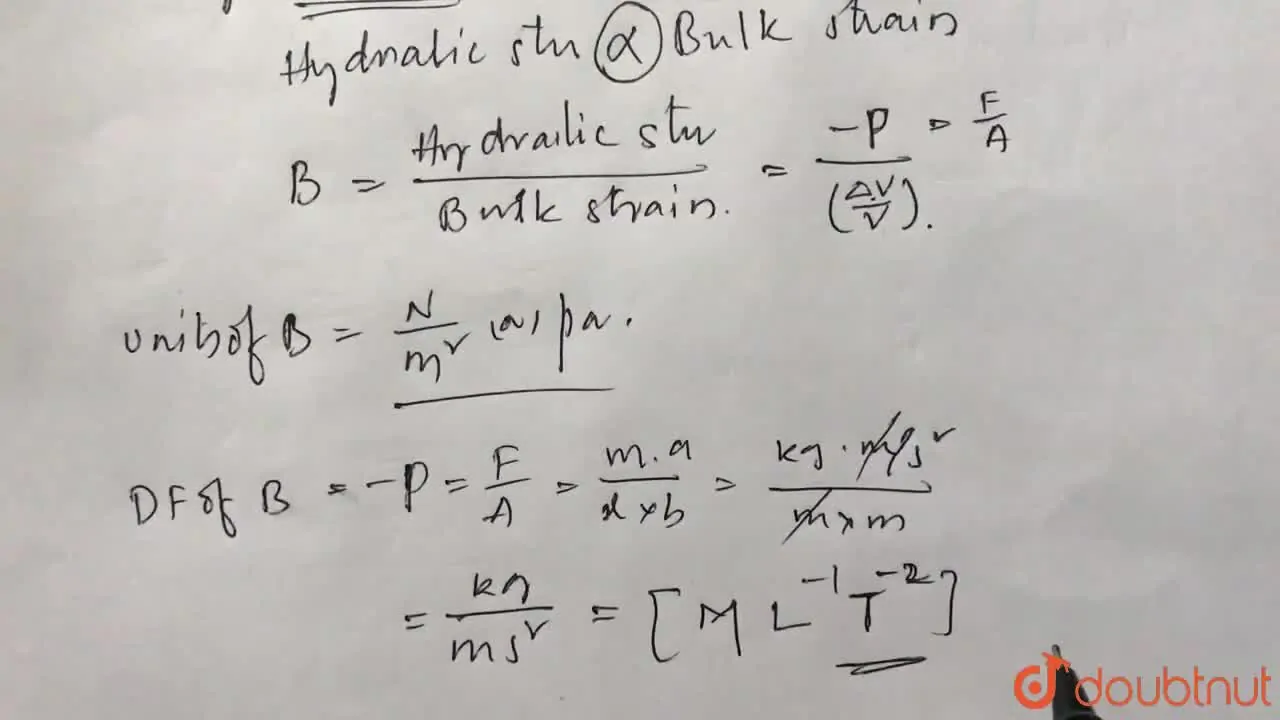 Hydralic stu ∝ Bulk strain
B = Hydrailic stu / Bulk strain. = -P / (ΔV/V). = F/A
units of B = N/m² (or) pa.
DF of B = -P = F/A = m.a / l×b = kg.m/s² / m×m
= kg / ms² = [M L⁻¹ T⁻²]
doubtnut